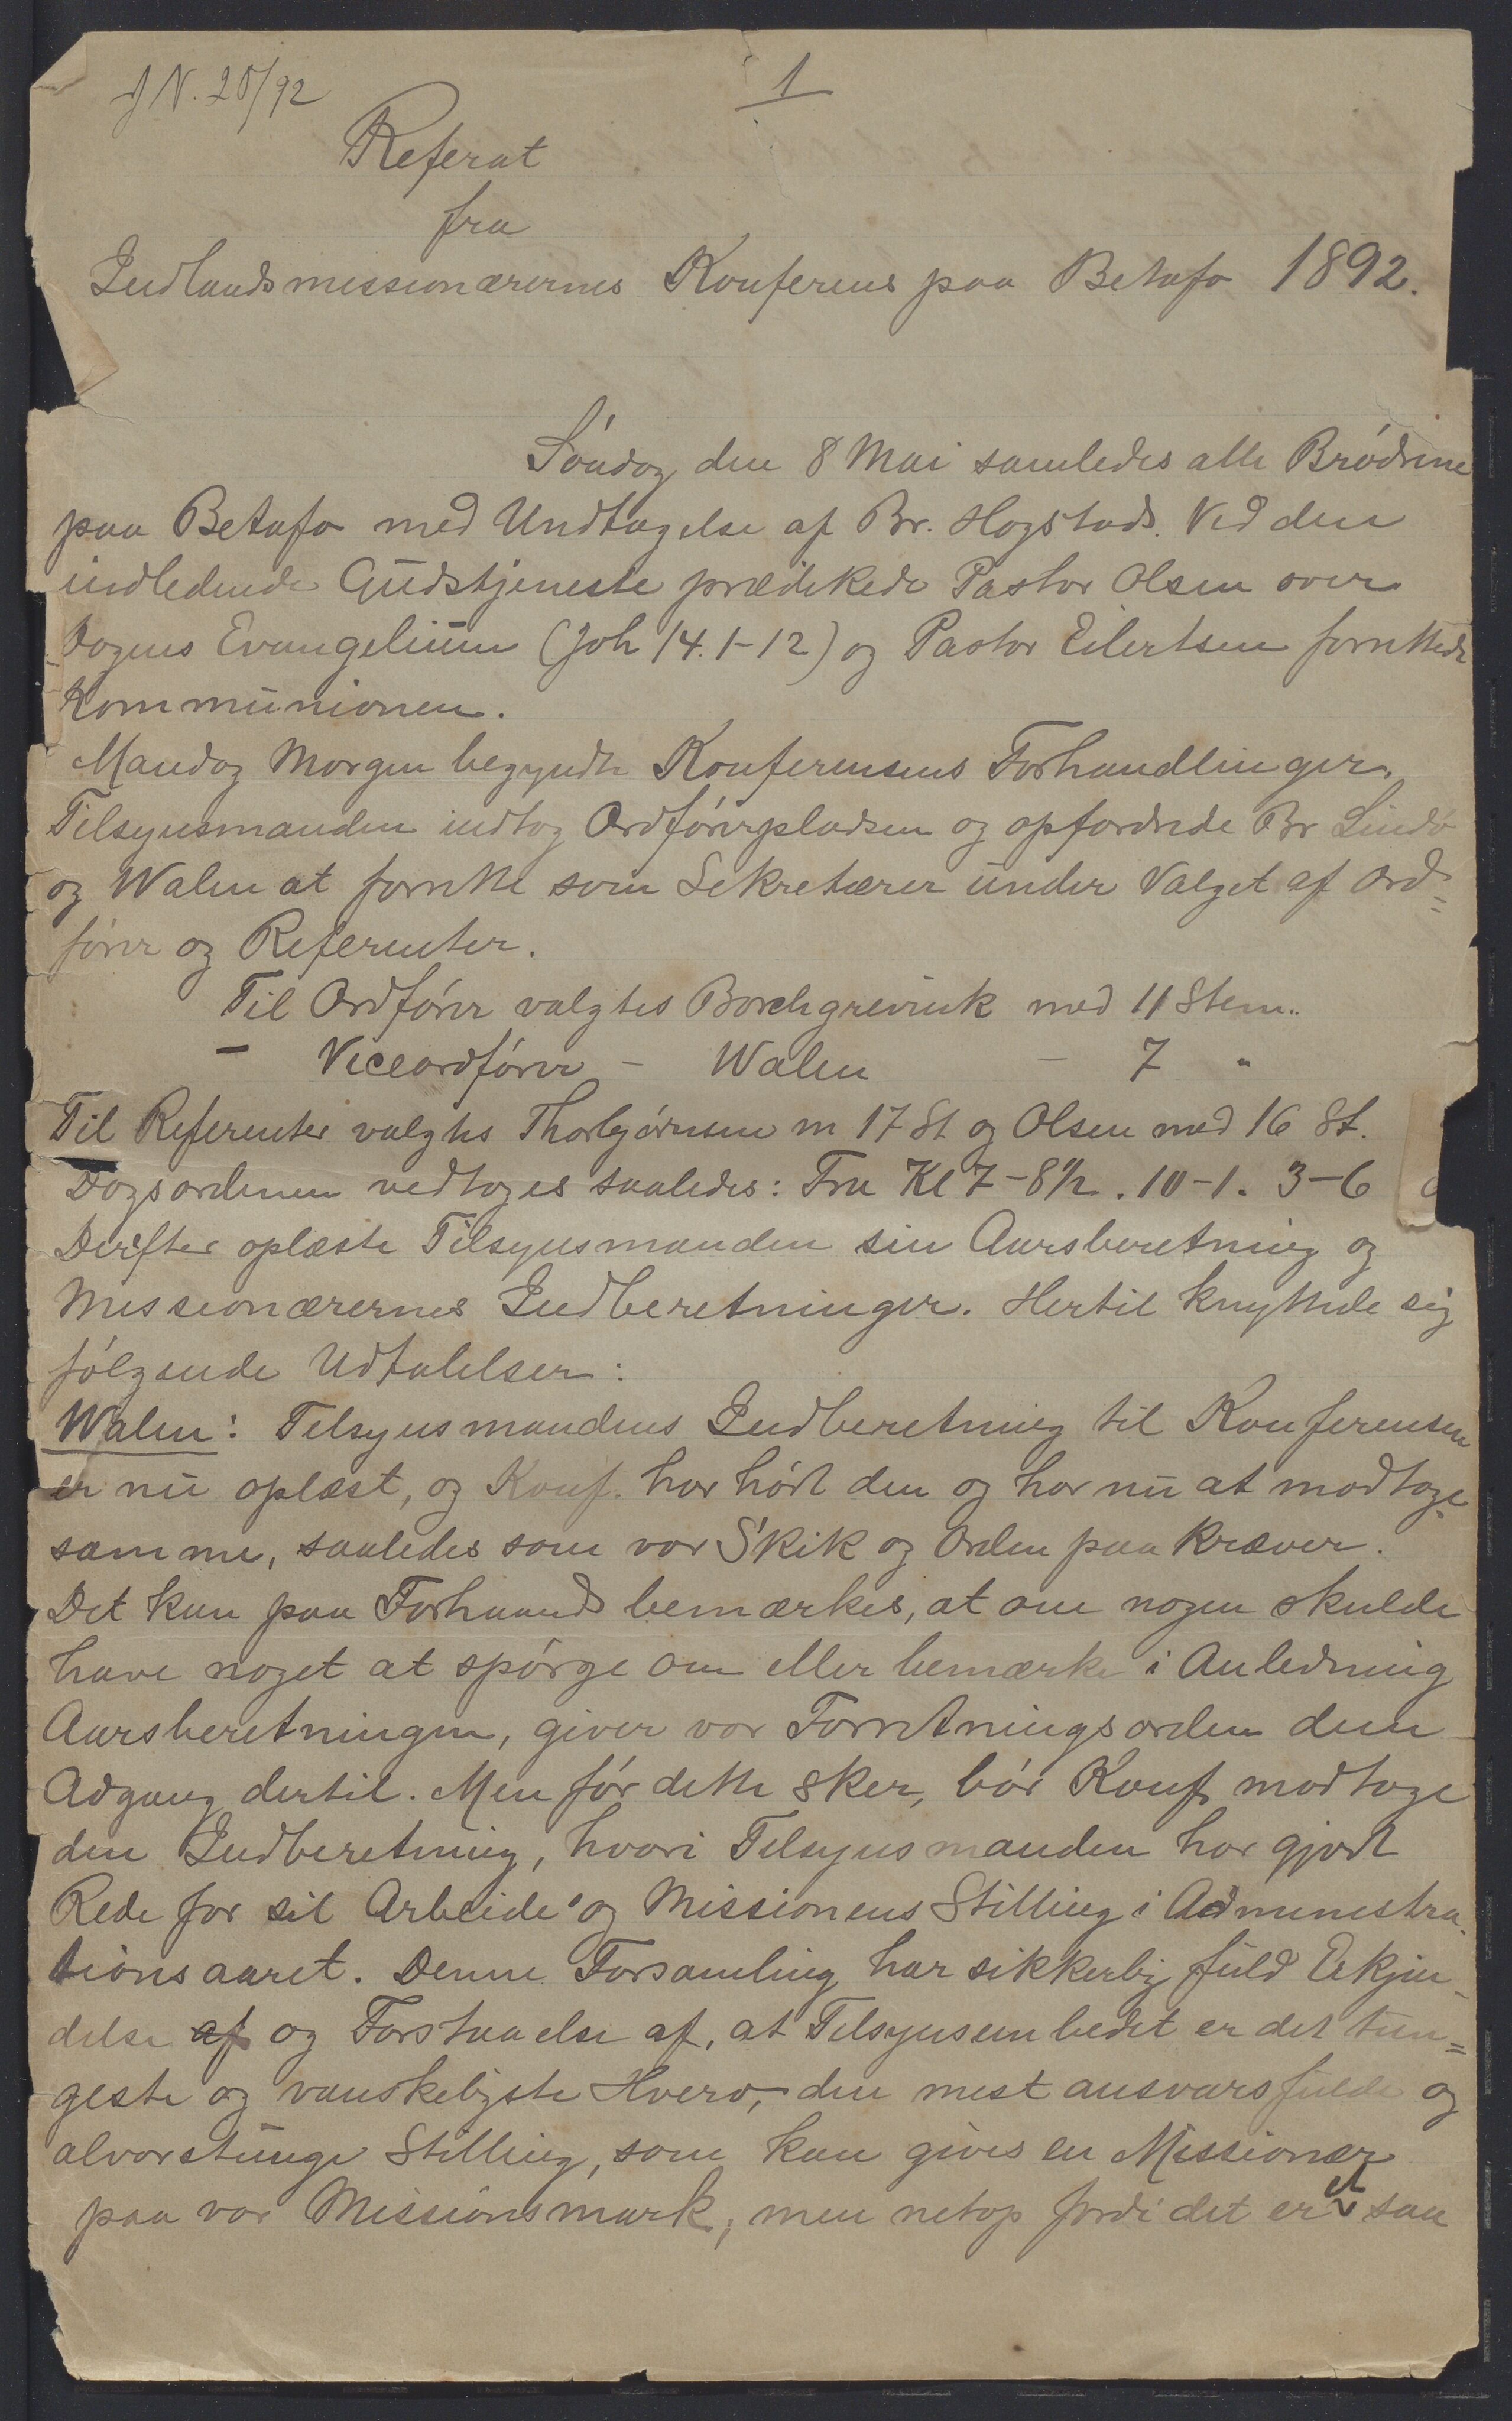 J N. 20/92
1
Referat
fra
Indlandsmissionærernes Konferens paa Betafo 1892.
Søndag den 8 Mai samledes alle Brødrene
paa Betafo med Undtagelse af Br. Hogstads. Ved den
indledende Gudstjeneste prædikede Pastor Olsen over
Dagens Evangelium (Joh 14. 1-12) og Pastor Eilertsen forrettede
Kommunionen.
Mandag Morgen begyndte Konferensens Forhandlinger.
Tilsynsmanden indtog Ordførerpladsen og opfordrede Br Lindø
og Walen at forrette som Sekretærer under Valget af Ord=
fører og Referenter.
Til Ordfører valgtes Borchgrevink med 11 Stem.
— Viceordfører — Walen — 7 "
Til Referenter valgtes Thorbjørnsen m 17 St og Olsen med 16 St.
Dagsordenen vedtoges saaledes: Fra Kl 7-8½. 10-1. 3-6
Derefter oplæste Tilsynsmanden sin Aarsberetning og
Missionærernes Indberetninger. Hertil knyttede sig
følgende Udtalelser:
Walen: Tilsynsmandens Indberetning til Konferensen
er nu oplæst, og Konf. har hørt den og har nu at modtage
samme, saaledes som vor Skik og Orden paa kræver.
Det kan paa Forhaand bemærkes, at om nogen skulde
have noget at spørge om eller bemærke i Anledning
Aarsberetningen, giver vor Forretningsorden dem
Adgang dertil. Men før dette sker, bør Konf. modtage
den Indberetning, hvori Tilsynsmanden har gjort
Rede for sit Arbeide og Missionens Stilling i Administra-
tionsaaret. Denne Forsamling har sikkerlig fuld Erkjen-
delse af og Forstaaelse af, at Tilsynsembedet er det tun=
geste og vanskeligste Hverv, den mest ansvarsfulde og
alvorstunge Stilling, som kan gives en Missionær
paa vor Missionsmark, men netop fordi det er et saa